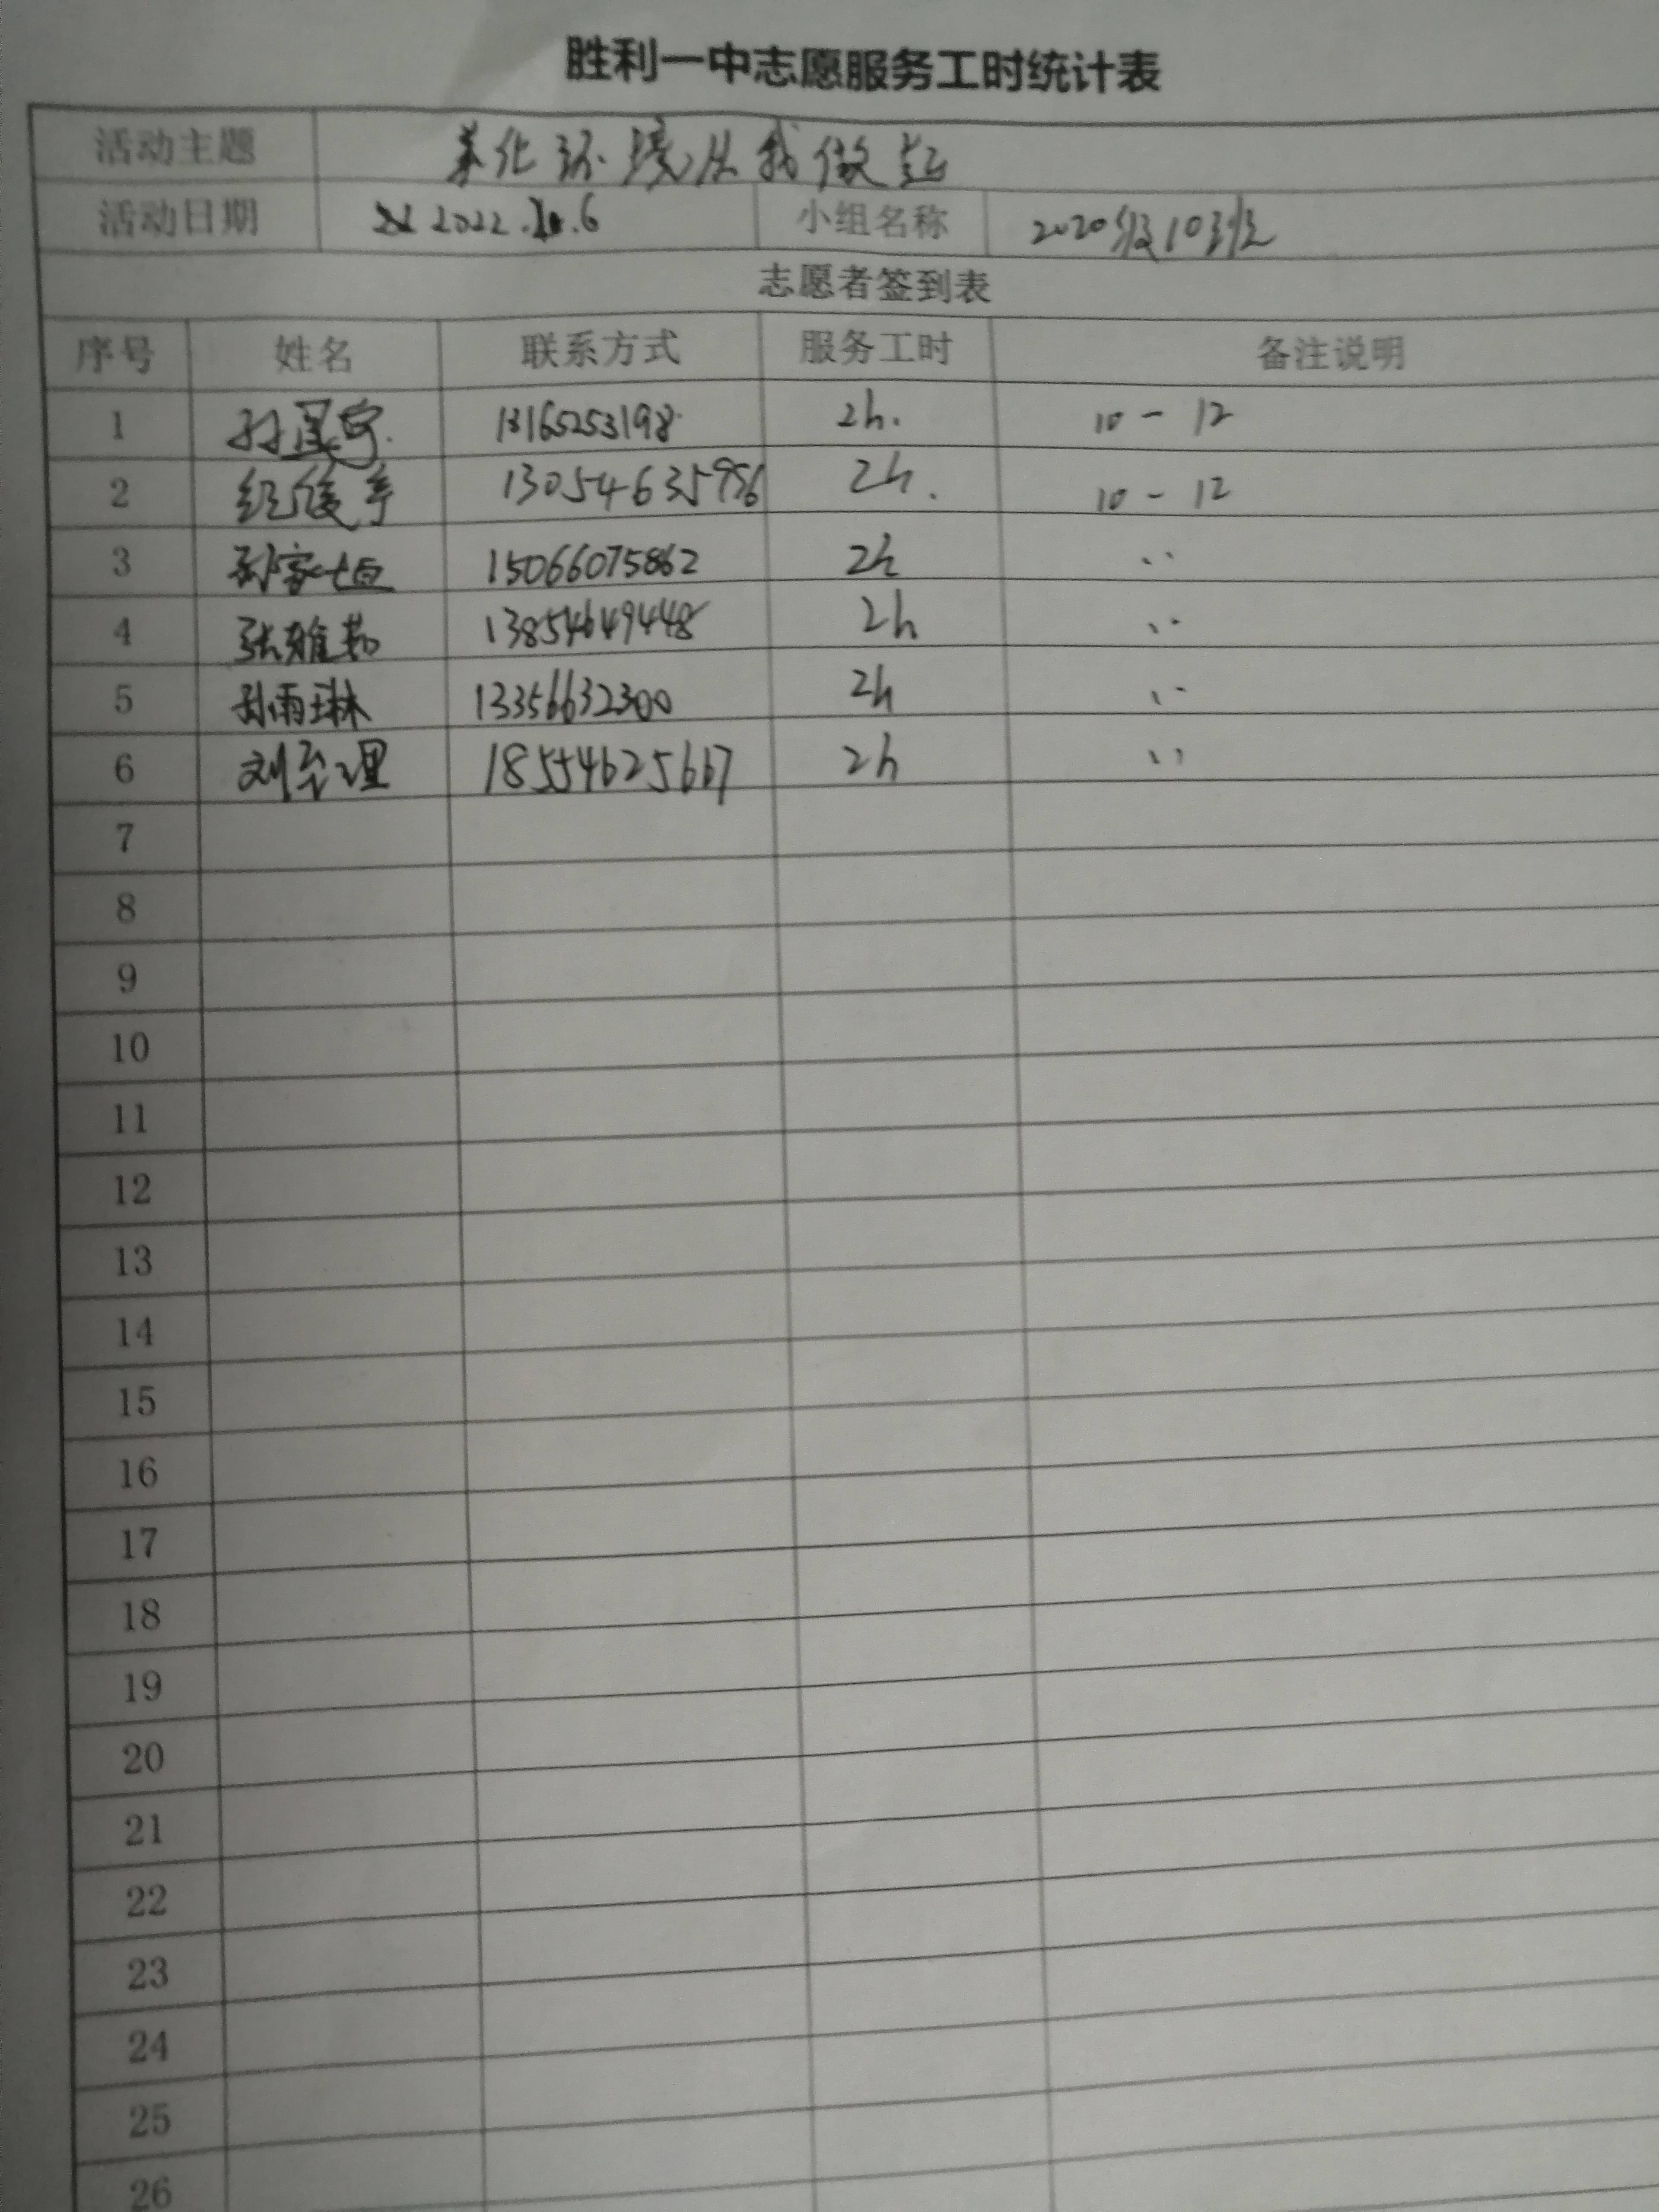 胜利一中志愿服务工时统计表
活动主题 美化环境从我做起
活动日期 2022.10.6 小组名称 2020级10班
志愿者签到表
序号 姓名 联系方式 服务工时 备注说明
1 2h. 10-12
2 13054635956 2h. 10-12
3 孙家恒 15066075862 2h 〃
4 张雅茹 13854649448 2h 〃
5 孙雨琳 13356632300 2h 〃
6 刘至理 18554625667 2h 〃
7
8
9
10
11
12
13
14
15
16
17
18
19
20
21
22
23
24
25
26